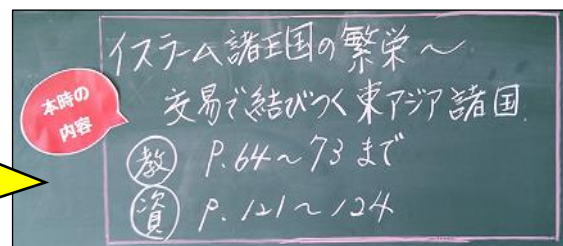 本時の
内容
イスラーム諸王国の繁栄〜
交易で結びつく東アジア諸国.
教 P.64〜73まで
資 P.121〜124